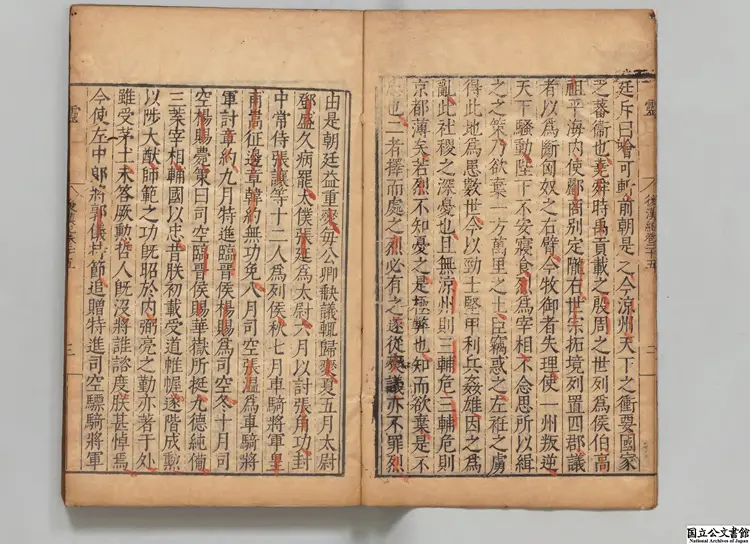 靈
後漢紀卷二十五
二
廷斥曰噲可斬前朝是之今涼州天下之衝要國家
之蕃衞也堯舜時禹貢載之殷周之世列爲侯伯高
祖平海内使酈商别定隴右世宗拓境列置四郡議
者以爲斷匈奴之右臂今牧御者失理使一州叛逆
天下騷動陛下不安寢食烈爲宰相不念思所以緝
之之策乃欲棄一方萬里之土臣竊惑之左衽之虜
得此地爲患數世今以勁士堅甲利兵姦雄因之爲
亂此社稷之深憂也且無涼州則三輔危三輔危則
京都薄矣若烈不知憂之是極弊也知而欲棄是不
忠也二者擇而處之烈必有之遂從燮議亦不罪烈
由是朝廷益重燮每公卿缺議輒歸燮夏五月太尉
鄧盛久病罷太僕張延爲太尉六月以討張角功封
中常侍張讓等十二人爲列侯秋七月車騎將軍皇
甫嵩征邊章韓約無功免八月司空張温爲車騎將
軍討章約九月特進臨晉侯楊賜爲司空冬十月司
空楊賜薨策曰司空臨晉侯賜華嶽所挺九德純備
三葉宰相輔國以忠昔朕初載受道帷幄遂階成勲
以陟大猷師範之功旣昭於内弼亮之勤亦著于外
雖受茅土未答厥勳哲人旣沒將誰諮度朕甚悼焉
今使左中郎將郭儀持節追贈特進司空驃騎將軍
靈
三
国立公文書館
National Archives of Japan